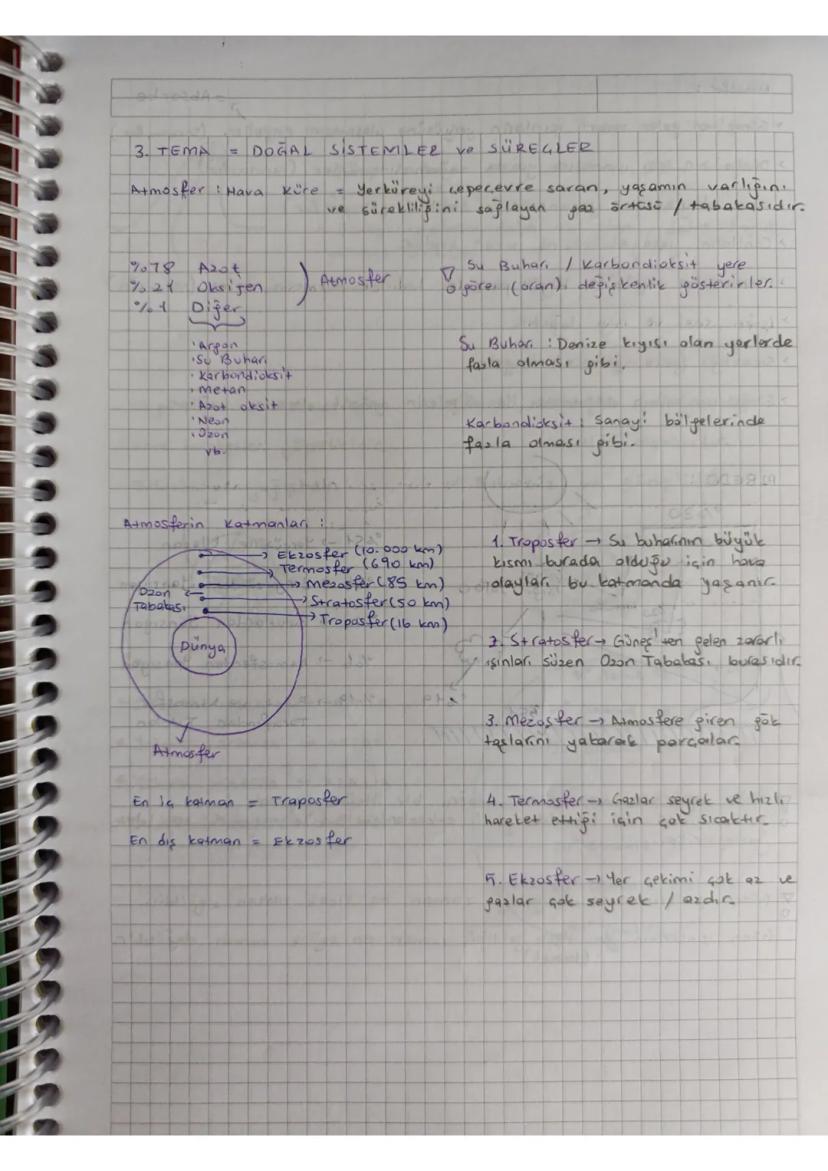 3. TEMA = DOĞAL SİSTEMLER ve SÜREÇLER
Atmosfer : Hava Küre = Yerküreyi çepeçevre saran, yaşamın varlığını
ve sürekliliğini sağlayan gaz örtüsü / tabakasıdır.
%78 Azot
%21 Oksijen
%1 Diğer
Atmosfer
• Argon
• Su Buharı
• Karbondioksit
• Metan
• Azot oksit
• Neon
• Ozon
vb.
Su Buharı / Karbondioksit yere
göre (oran) değişkenlik gösterirler.
Su Buharı : Denize kıyısı olan yerlerde
fazla olması gibi.
Karbondioksit : Sanayi bölgelerinde
fazla olması gibi.
Atmosferin Katmanları :
Ekzosfer (10.000 km)
Termosfer (690 km)
Mezosfer (85 km)
Stratosfer (50 km)
Troposfer (16 km)
Ozon
Tabakası
Dünya
Atmosfer
En iç katman = Traposfer
En dış katman = Ekzosfer
1. Troposfer → Su buharının büyük
kısmı burada olduğu için hava
olayları bu katmanda yaşanır.
2. Stratosfer → Güneş'ten gelen zararlı
ışınları süzen Ozon Tabakası burasıdır.
3. Mezosfer → Atmosfere giren gök
taşlarını yakarak parçalar.
4. Termosfer → Gazlar seyrek ve hızlı
hareket ettiği için çok sıcaktır.
5. Ekzosfer → Yer çekimi çok az ve
gazlar çok seyrek / azdır.